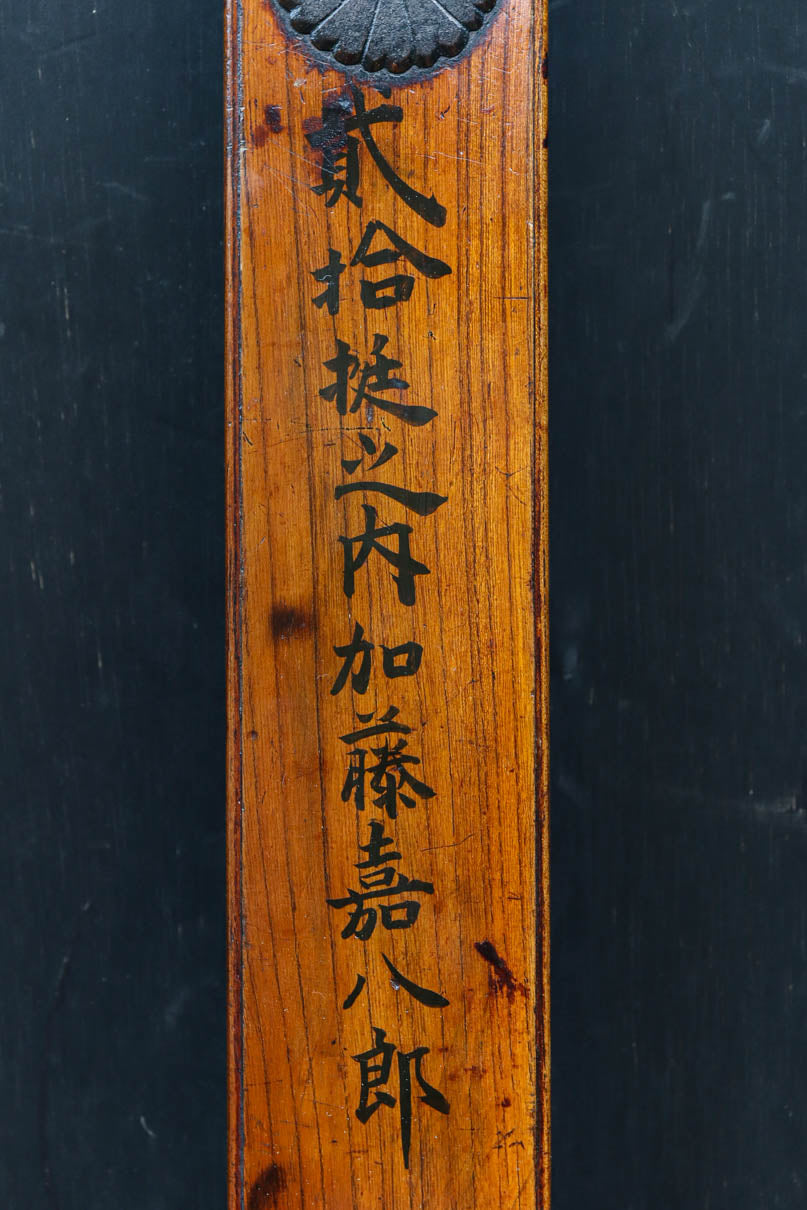 貮拾挺之内加藤嘉八郎